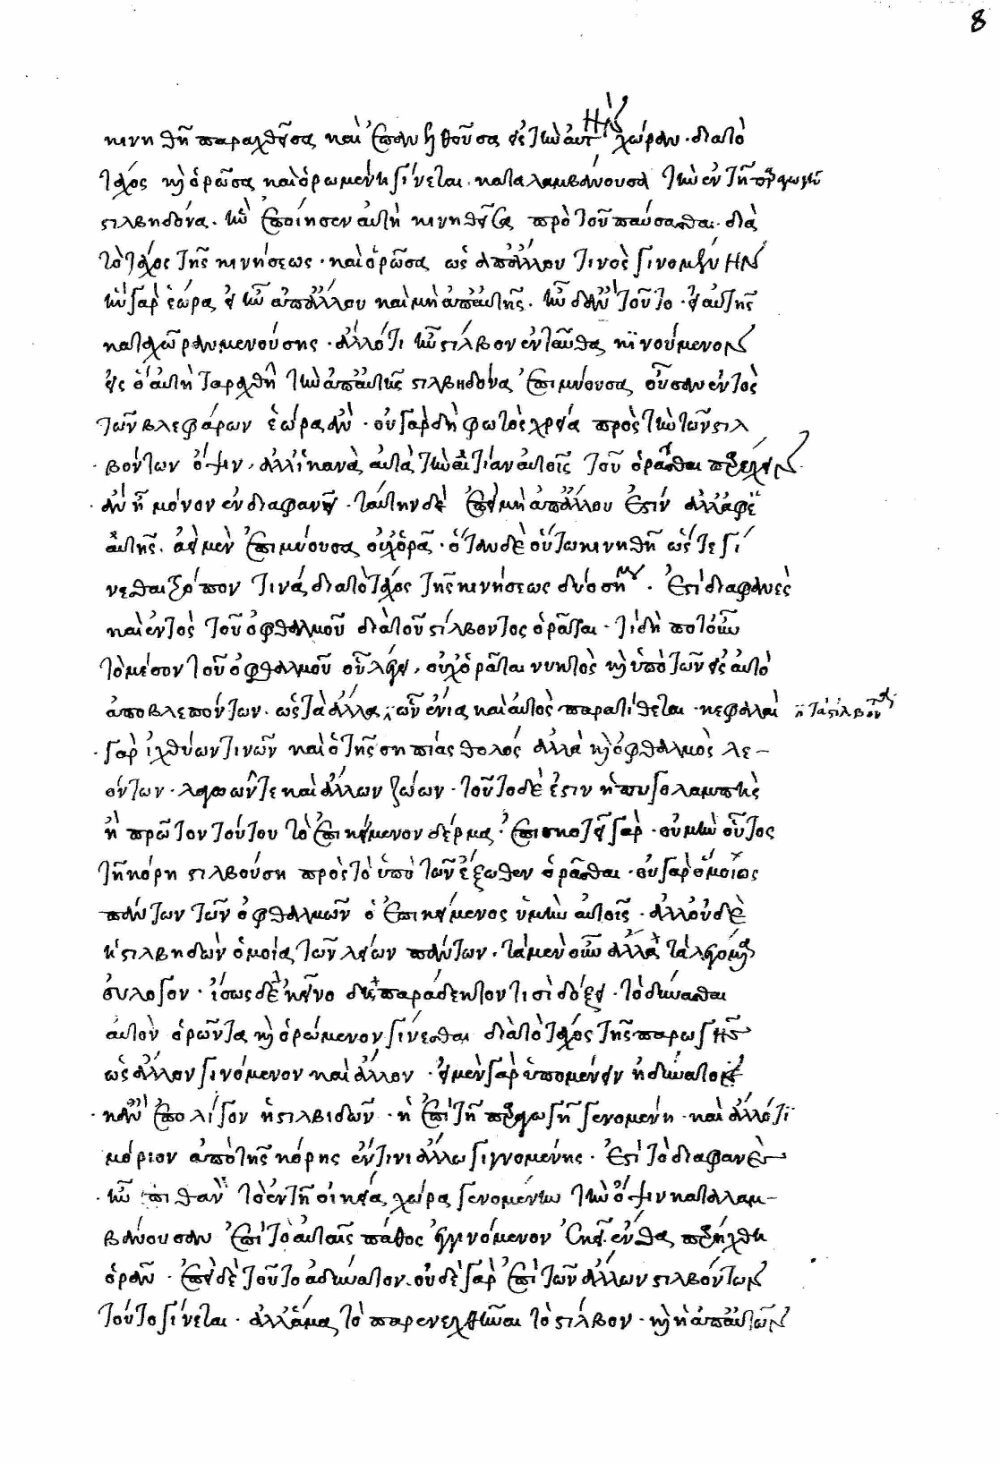 8
κινηθῇ παραχθεῖσα καὶ ἐπανελθοῦσα εἰς τὴν αὐτὴν χώραν · διὰ τὸ
τάχος καὶ ὁρῶσα καὶ ὁρωμένη γίνεται · καταλαμβάνουσα τὴν ἐν τῇ προαγωγῇ
στιλβηδόνα · ἣν ἐποίησεν αὐτὴ κινηθεῖσα πρὸ τοῦ παύσασθαι · διὰ
τὸ τάχος τῆς κινήσεως · καὶ ὁρῶσα ὡς ἀπ' ἄλλου τινὸς γινομένην
ἣν γὰρ ἑώρα εἰ ἦν ἀπ' ἄλλου καὶ μὴ ἀπ' αὐτῆς · ἦν δ' ἂν τοῦτο · εἰ αὐτῆς
κατὰ χώραν μενούσης · ἄλλό τι ἦν στίλβον ἐνταῦθα κινούμενον
εἰς ὃ αὐτὴ ταραχθῆ τὴν ἀπ' αὐτῆς στιλβηδόνα ἐπιμύουσα οὖσαν ἐντὸς
τῶν βλεφάρων ἑώρα ἄν · οὐ γὰρ δὴ φωτὸς χρεία πρὸς τὴν τῶν στιλ
βόντων ὄψιν · ἀλλ' ἱκανὰ αὐτὰ τὴν αἰτίαν αὐτοῖς τοῦ ὁρᾶσθαι παρέχειν
ἂν ᾖ μόνον ἐν διαφανεῖ · ταύτην δὲ ἐπεὶ μὴ ἀπ' ἄλλου ἐστίν ἀλλ' ἀφ' ἑ
αυτῆς · ἀεὶ μὲν ἐπιμύουσα οὐχ ὁρᾷ · ὅταν δὲ οὕτω κινηθῇ ὥστε γί
νεσθαι τρόπον τινὰ διὰ τὸ τάχος τῆς κινήσεως δύο · ἐπεὶ διαφανὲς
καὶ ἐντὸς τοῦ ὀφθαλμοῦ διὰ τοῦ στίλβοντος ὁρᾶται · τί δή ποτ' οὖν
τὸ μέσον τοῦ ὀφθαλμοῦ οὗ λέγει, οὐχ ὁρᾶται νυκτὸς καὶ ὑπὸ τῶν εἰς αὐτὸ
ἀποβλεπόντων · ὡς τὰ ἄλλα, ὧν ἔνια καὶ αὐτὸς παρατίθεται · κεφαλαὶ
γὰρ ἰχθύων τινῶν καὶ ὁ τῆς σηπίας θολός ἀλλὰ καὶ ὀφθαλμὸς λε
όντων · λύκων τε καὶ ἄλλων ζῴων · τοῦτο δέ ἐστιν ἡ πυγολαμπὶς
ἢ πρῶτον τούτου τὸ ἐπικείμενον δέρμα · ἐπισκοτεῖ γὰρ · οὐ μὴν οὗτος
τῇ κόρῃ στιλβούσῃ πρὸς τὸ ὑπὸ τῶν ἔξωθεν ὁρᾶσθαι · οὐ γὰρ ὁμοίως
πάντων τῶν ὀφθαλμῶν ὁ ἐπικείμενος ὑμὴν αὐτοῖς · ἀλλ' οὐδὲ
ἡ στιλβηδὼν ὁμοία τῶν λείων πάντων · τὰ μὲν οὖν ἄλλα τὰ λεγόμενα
εὔλογον · ἴσως δὲ κεῖνο δυσπαράδεκτόν τισι δόξει · τὸ δύνασθαι
αὐτὸν ὁρῶντα καὶ ὁρώμενον γίνεσθαι διὰ τὸ τάχος τῆς παραγωγῆς
ὡς ἄλλον γινόμενον καὶ ἄλλον · εἰ μὲν γὰρ ὑπομένειν ἠδύνατο
κἂν ἐπ' ὀλίγον ἡ στιλβιδών · ἡ ἐπὶ τῇ προαγωγῇ γενομένη · καὶ ἄλλό τι
μόριον ἀπὸ τῆς κόρης ἔν τινι ἄλλῳ γιγνομένης · ἐπεὶ τὸ διαφανὲς
ἦν πιθανὸν τὸ ἐν τῇ οἰκείᾳ χώρᾳ γενομένην τὴν ὄψιν καταλαμ
βάνουσαν ἐπὶ τὸ αὐταῖς πάθος ἐγγινόμενον ἐκεῖ ἔνθα παρήχθη
ὁρᾶν · ἐπεὶ δὲ τοῦτο ἀδύνατον · οὐδὲ γὰρ ἐπὶ τῶν ἄλλων στιλβόντων
τοῦτο γίνεται · ἀλλ' ἅμα τὸ παρενεχθῆναι τὸ στίλβον · καὶ ἡ ἀπ' αὐτῶν